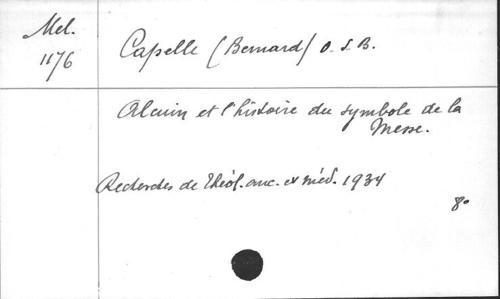 Mel.
1176
Capelle (Bernard) O. S. B.
Alcuin et l'histoire du symbole de la
Messe.
Recherches de Théol. anc. et méd. 1934
8°